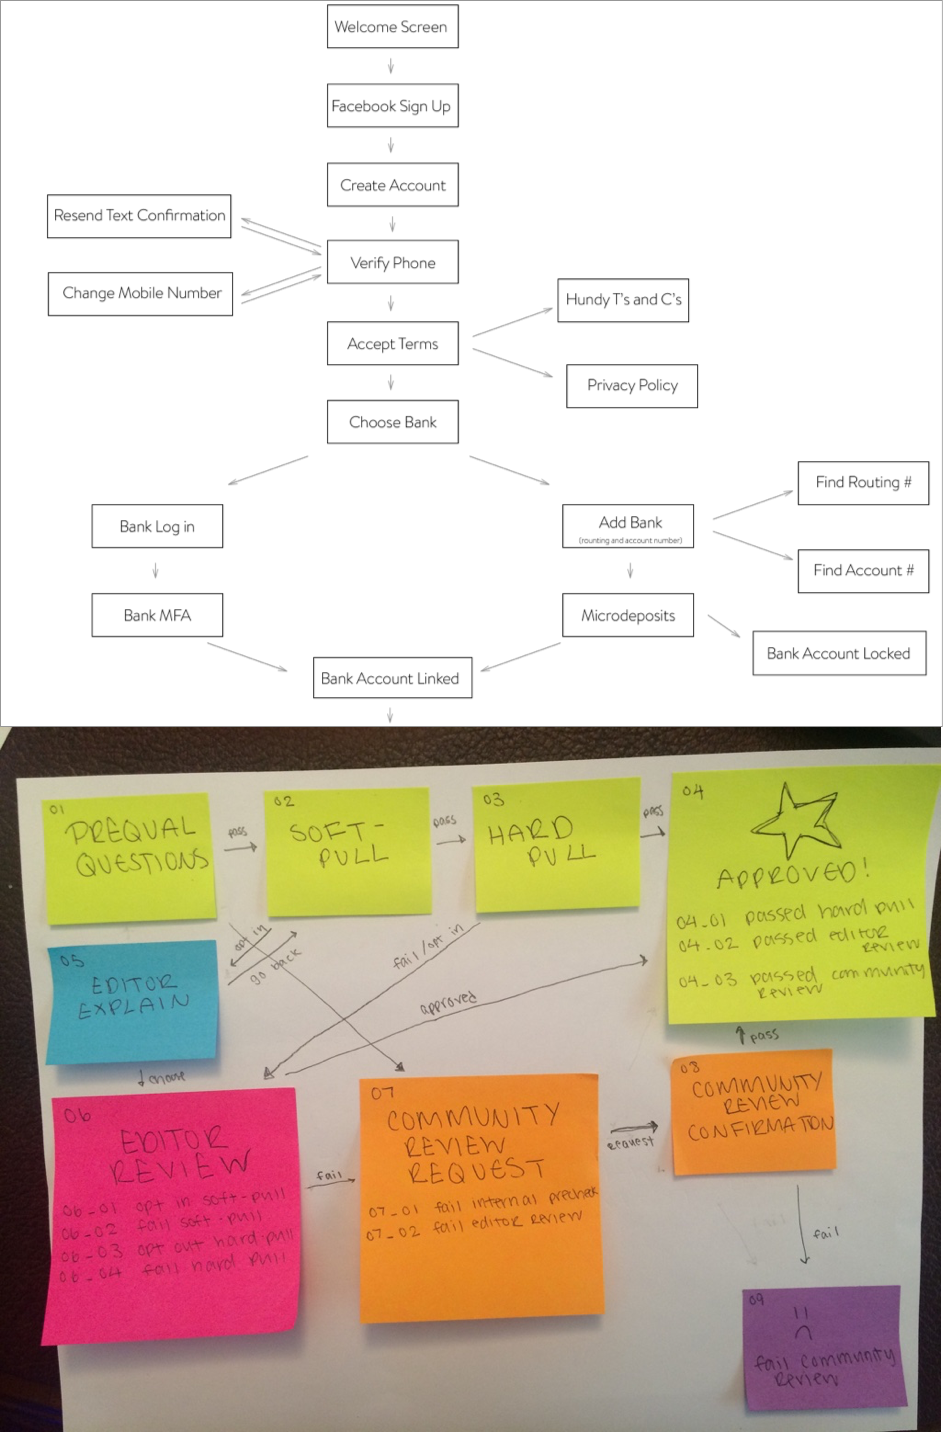 Welcome Screen
Facebook Sign Up
Create Account
Resend Text Confirmation
Verify Phone
Change Mobile Number
Hundy T's and C's
Accept Terms
Privacy Policy
Choose Bank
Find Routing #
Bank Log in
Add Bank
(rounting and account number)
Find Account #
Bank MFA
Microdeposits
Bank Account Locked
Bank Account Linked
01
PREQUAL
QUESTIONS
pass
02
SOFT-
PULL
pass
03
HARD
PULL
pass
04
APPROVED!
04_01 passed hard pull
04_02 passed editor
review
04_03 passed community
review
05
EDITOR
EXPLAIN
opt in
go back
fail/opt in
approved
pass
06
EDITOR
REVIEW
06_01 opt in soft-pull
06_02 fail soft-pull
06_03 opt out hard-pull
06_04 fail hard pull
fail
07
COMMUNITY
REVIEW
REQUEST
07_01 fail internal precheck
07_02 fail editor review
request
08
COMMUNITY
REVIEW
CONFIRMATION
fail
09
fail community
review